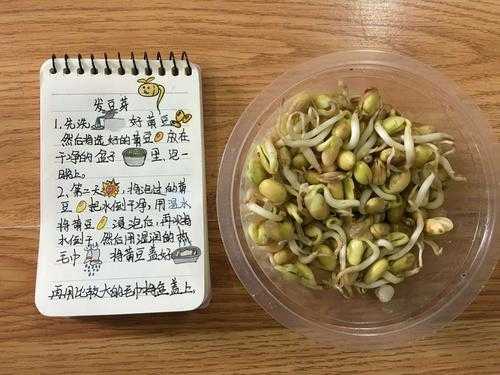 发豆芽
1.先洗好黄豆
然后将选好的黄豆放在
干净的盒子里,泡一
晚上。
2.第二天,将泡过的黄
豆把水倒干净,用温水
将黄豆浸泡后,再将
水倒干,然后用湿润的
毛巾将黄豆盖好
再用比较大的毛巾将盒盖上